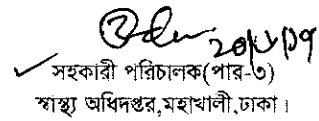 সহকারী পরিচালক(পার-৩)
স্বাস্থ্য অধিদপ্তর,মহাখালী,ঢাকা।